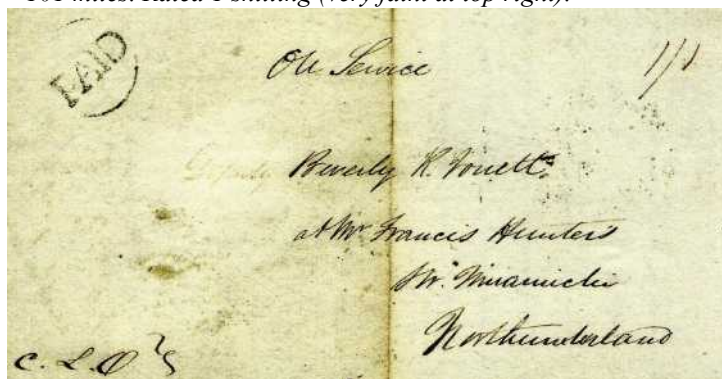 101 miles. Rated 1 shilling (very faint at top right).
PAID
On Service
1/1
Beverly R. Jouett
at Mr Francis Hunters
Miramichi
Northumberland
C. L. O